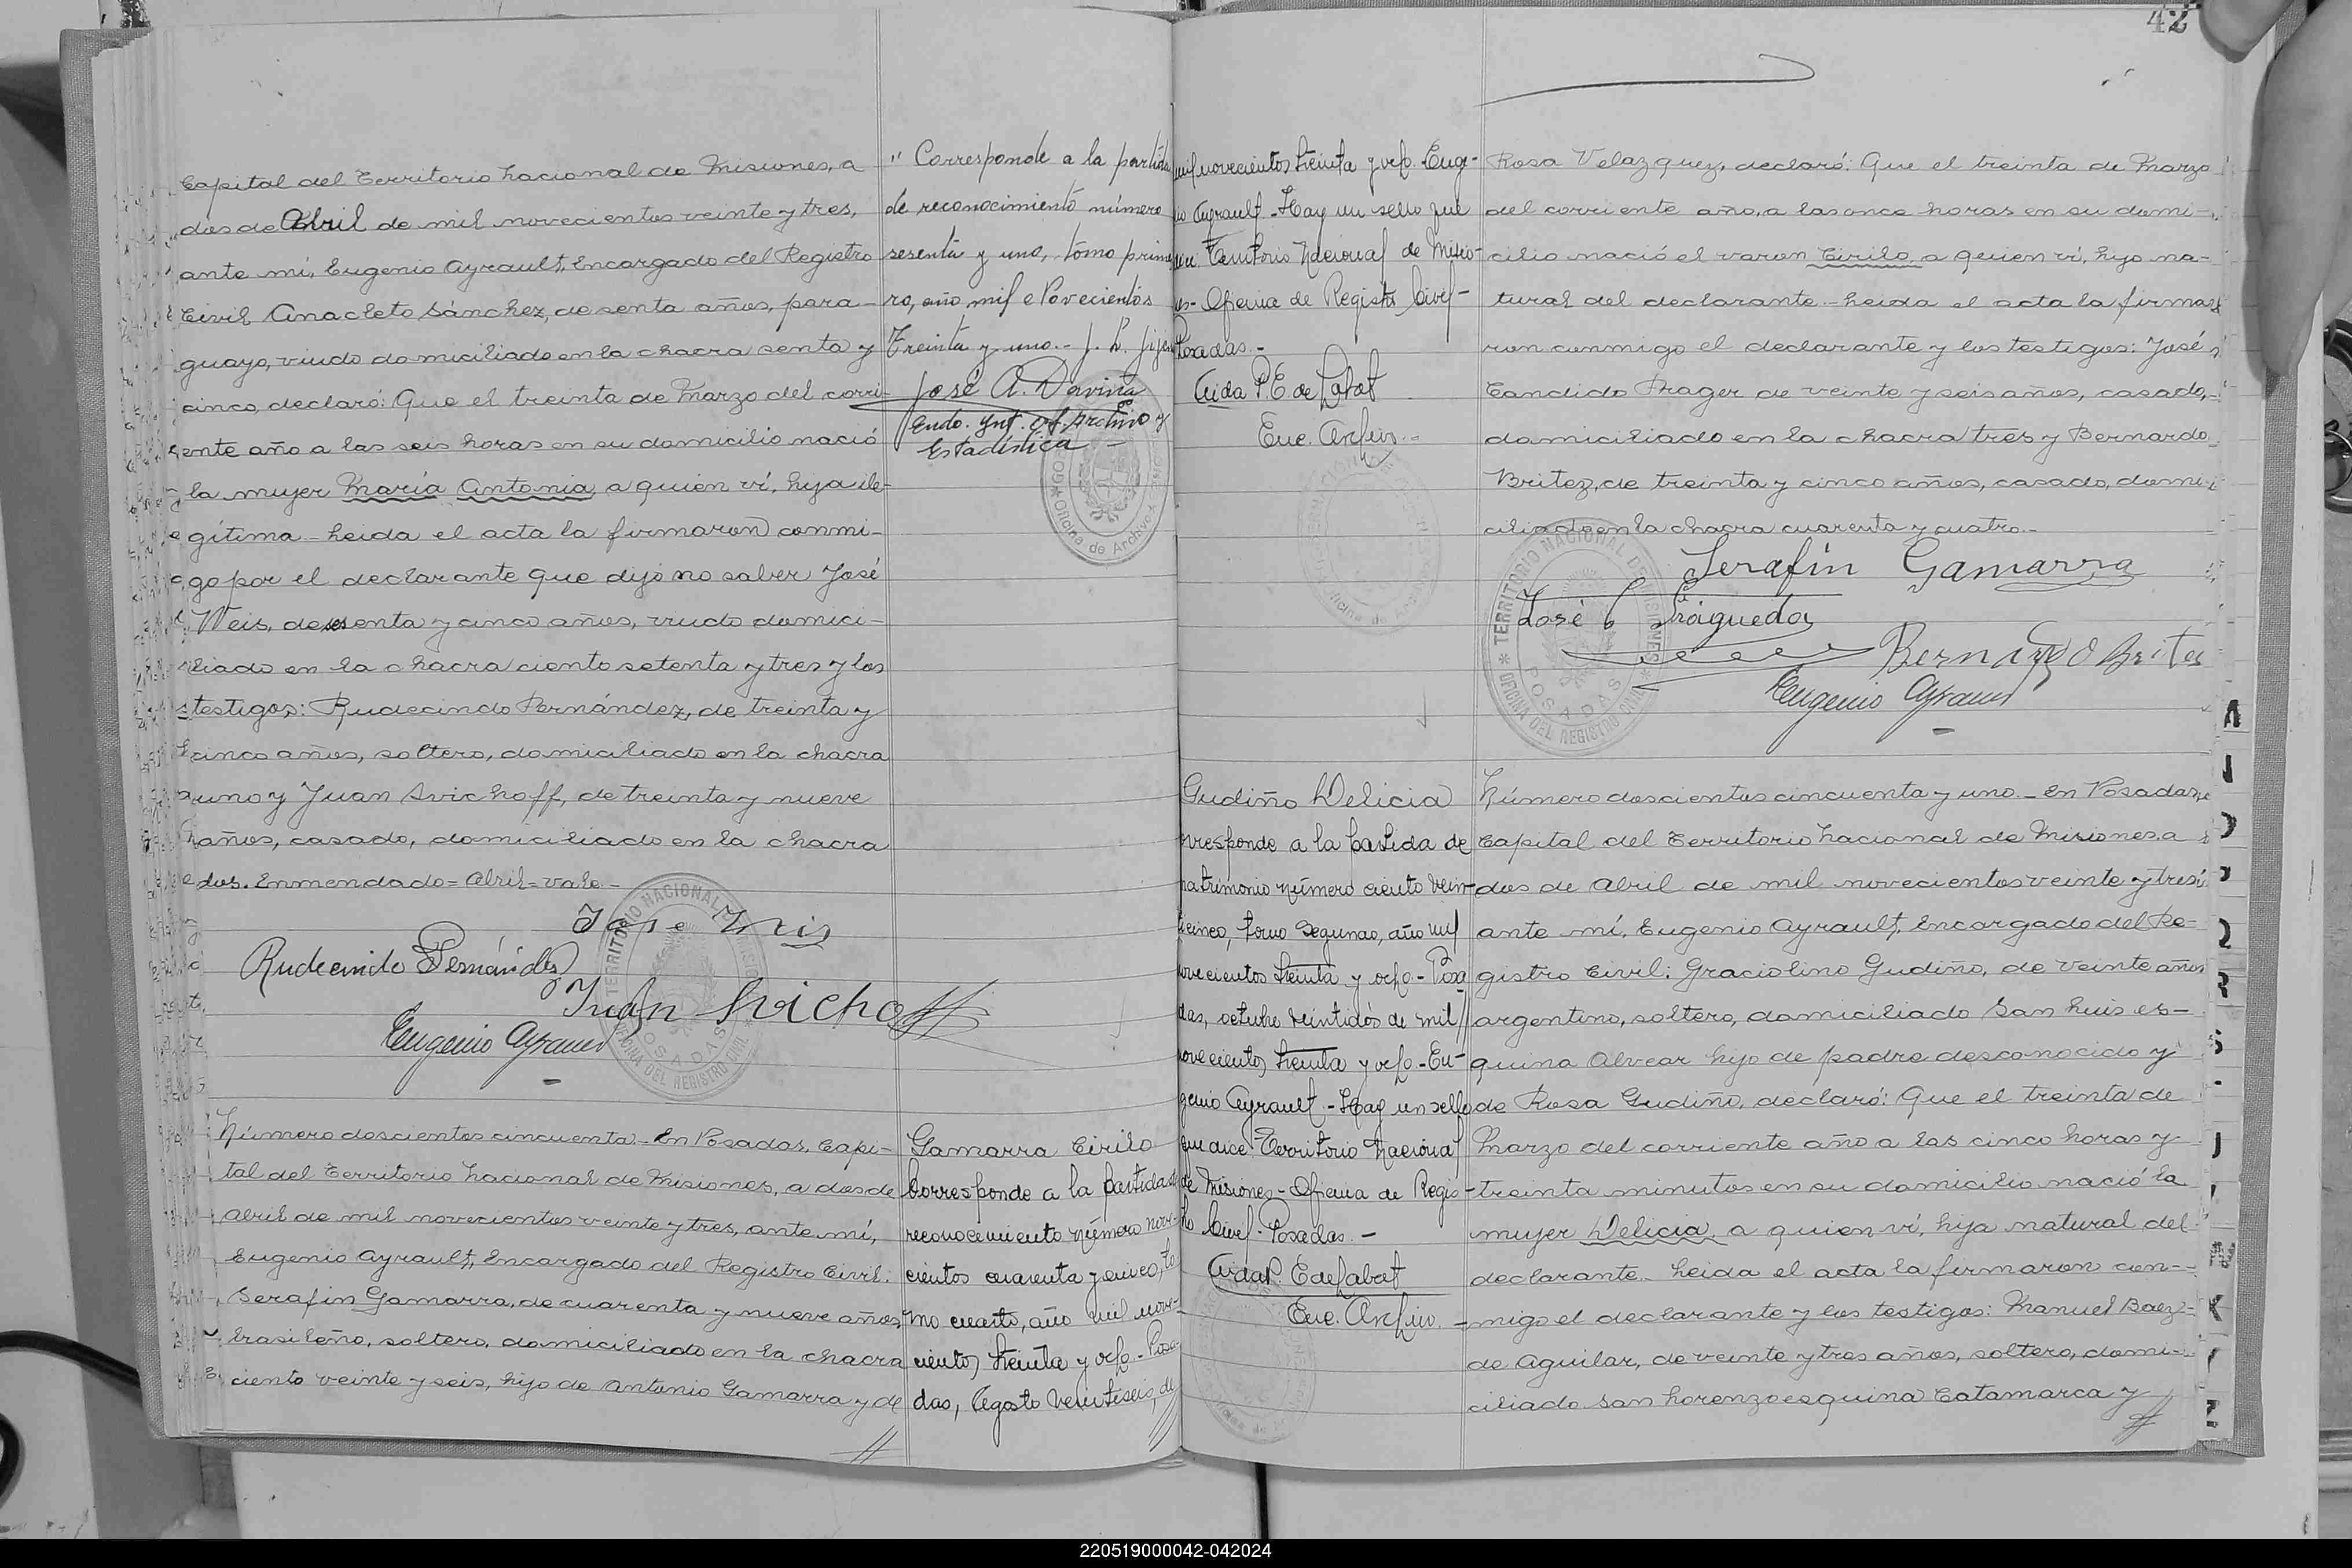 42
Capital del Territorio Nacional de Misiones, a
dos de Abril de mil novecientos veinte y tres,
ante mí, Eugenio Ayrault, Encargado del Registro
Civil Anacleto Sánchez, de senta años, para-
guayo, viudo domiciliado en la chacra senta y
cinco, declaró: Que el treinta de Marzo del corri-
ente año a las seis horas en su domicilio nació
la mujer María Antonia, a quien ví, hija ile-
gítima. Leida el acta la firmaron conmi-
go por el declarante que dijo no saber José
Weis, de sesenta y cinco años, viudo domici-
liado en la chacra ciento setenta y tres y los
testigos: Rudecindo Fernández, de treinta y
cinco años, soltero, domiciliado en la chacra
uno y Juan Svichoff, de treinta y nueve
años, casado, domiciliado en la chacra
dos. Enmendado=Abril=vale.-
Rudecindo Fernández
Juan Svichoff
Eugenio Ayrault
Número doscientos cincuenta - En Posadas, Capi-
tal del Territorio Nacional de Misiones, a dos de
Abril de mil novecientos veinte y tres, ante mí,
Eugenio Ayrault, Encargado del Registro Civil.
Serafin Gamarra, de cuarenta y nueve años,
brasileño, soltero, domiciliado en la chacra
ciento veinte y seis, hijo de Antonio Gamarra y de
" Corresponde a la partida
de reconocimiento número
sesenta y uno, tomo prime
ro, año mil Novecientos
Treinta y uno.-
José A. Daviña
Archivo y
Estadística
Gamarra Cirilo
Corresponde a la partida de
reconocimiento número nove-
cientos cuarenta y cinco, to
mo cuarto, año mil nove-
cientos treinta y ocho - Posa-
das, Agosto veintiseis, de
mil novecientos treinta y ocho - Euge-
nio Ayrault - Hay un sello que
dice Territorio Nacional de Misio-
nes - Oficina de Registro Civil -
Posadas.-
Aida P. E. de Labat
Enc. Archivo.-
Rosa Velazquez, declaró: Que el treinta de Marzo
del corriente año, a las once horas en su domi-
cilio nació el varon Cirilo, a quien ví, hijo na-
tural del declarante - Leida el acta la firma-
ron conmigo el declarante y los testigos: José
Candido Frager de veinte y seis años, casado,
domiciliado en la chacra tres y Bernardo
Britez, de treinta y cinco años, casado, domi-
ciliado en la chacra cuarenta y cuatro.-
Serafín Gamarra
José C
Bernardo Britez
Eugenio Ayrault
TERRITORIO NACIONAL DE MISIONES
OFICINA DEL REGISTRO CIVIL
POSADAS
Gudiño Delicia
Corresponde a la partida de
matrimonio número ciento vein-
ticinco, tomo segundo, año mil
novecientos treinta y ocho - Posa
das, octubre veintidós de mil
novecientos treinta y ocho - Eu-
genio Ayrault - Hay un sello
que dice Territorio Nacional
de Misiones - Oficina de Regis-
tro Civil - Posadas.-
Aida P. E. de Labat
Enc. Archivo.
Número doscientos cincuenta y uno - En Posadas,
Capital del Territorio Nacional de Misiones, a
dos de Abril de mil novecientos veinte y tres,
ante mí, Eugenio Ayrault, Encargado del Re-
gistro Civil; Graciolino Gudiño, de veinte años
argentino, soltero, domiciliado San Luis es-
quina Alvear hijo de padre desconocido y
de Rosa Gudiño, declaró: Que el treinta de
Marzo del corriente año a las cinco horas y
treinta minutos en su domicilio nació la
mujer Delicia, a quien ví, hija natural del
declarante. Leida el acta la firmaron con-
migo el declarante y los testigos: Manuel Baez
de Aguilar, de veinte y tres años, soltero, domi-
ciliado San Lorenzo esquina Catamarca y
220519000042-042024